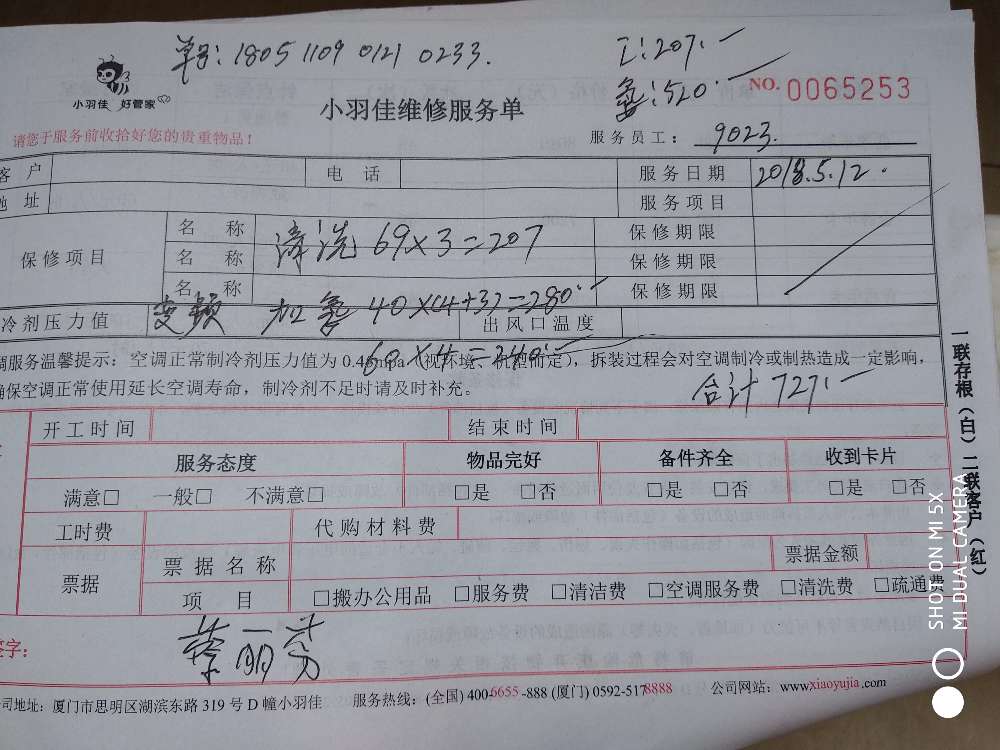 单号: 1805 1109 0121 0233.
工: 207.一
氟: 520.一
小羽佳 好管家
小羽佳维修服务单
NO. 0065253
请您于服务前收拾好您的贵重物品！
服务员工： 9023.
客 户 电 话 服务日期 2018.5.12.
地 址 服务项目
保修项目 名 称 清洗 69×3=207 保修期限
名 称 保修期限
名 称 保修期限
变频 加氟 40×(4+3)=280.一
冷剂压力值 出风口温度
60×4=240.一
调服务温馨提示：空调正常制冷剂压力值为0.45mpa（视环境、机型而定），拆装过程会对空调制冷或制热造成一定影响，
确保空调正常使用延长空调寿命，制冷剂不足时请及时补充。
合计 727.一
开工时间 结束时间
服务态度 物品完好 备件齐全 收到卡片
满意□ 一般□ 不满意□ □是 □否 □是 □否 □是 □否
工时费 代购材料费
票据 票据名称 票据金额
项 目 □搬办公用品 □服务费 □清洁费 □空调服务费 □清洗费 □疏通费
签字： 蔡丽芬
公司地址：厦门市思明区湖滨东路319号D幢小羽佳 服务热线：(全国) 400-6655-888 (厦门) 0592-5178888 公司网站：www.xiaoyujia.com
一联存根（白）二联客户（红）
SHOT ON MI 5X
MI DUAL CAMERA